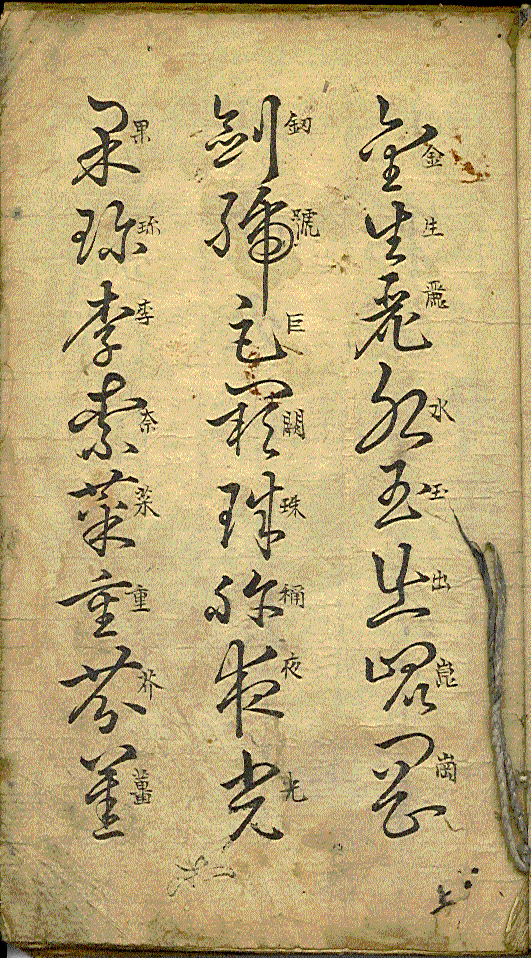 金生麗水玉出崑崗
劍號巨闕珠稱夜光
果珍李柰菜重芥薑